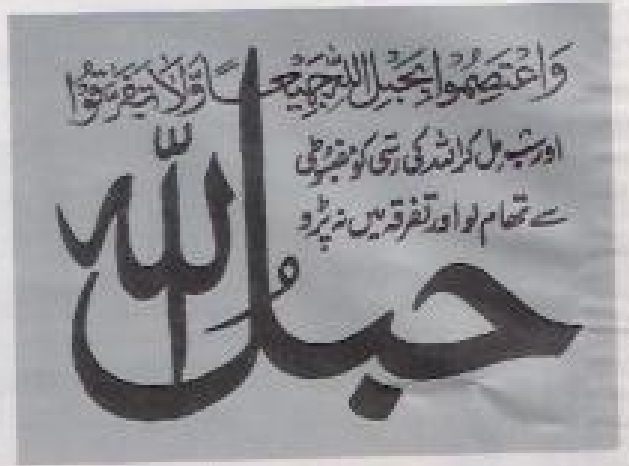 وَاعْتَصِمُوا بِحَبْلِ اللّٰهِ جَمِيْعًا وَّلَا تَفَرَّقُوْا
اور سب مل کر اللہ کی رسی کو مضبوطی
سے تھام لو اور تفرقہ میں نہ پڑو
حبلُ اللّٰه